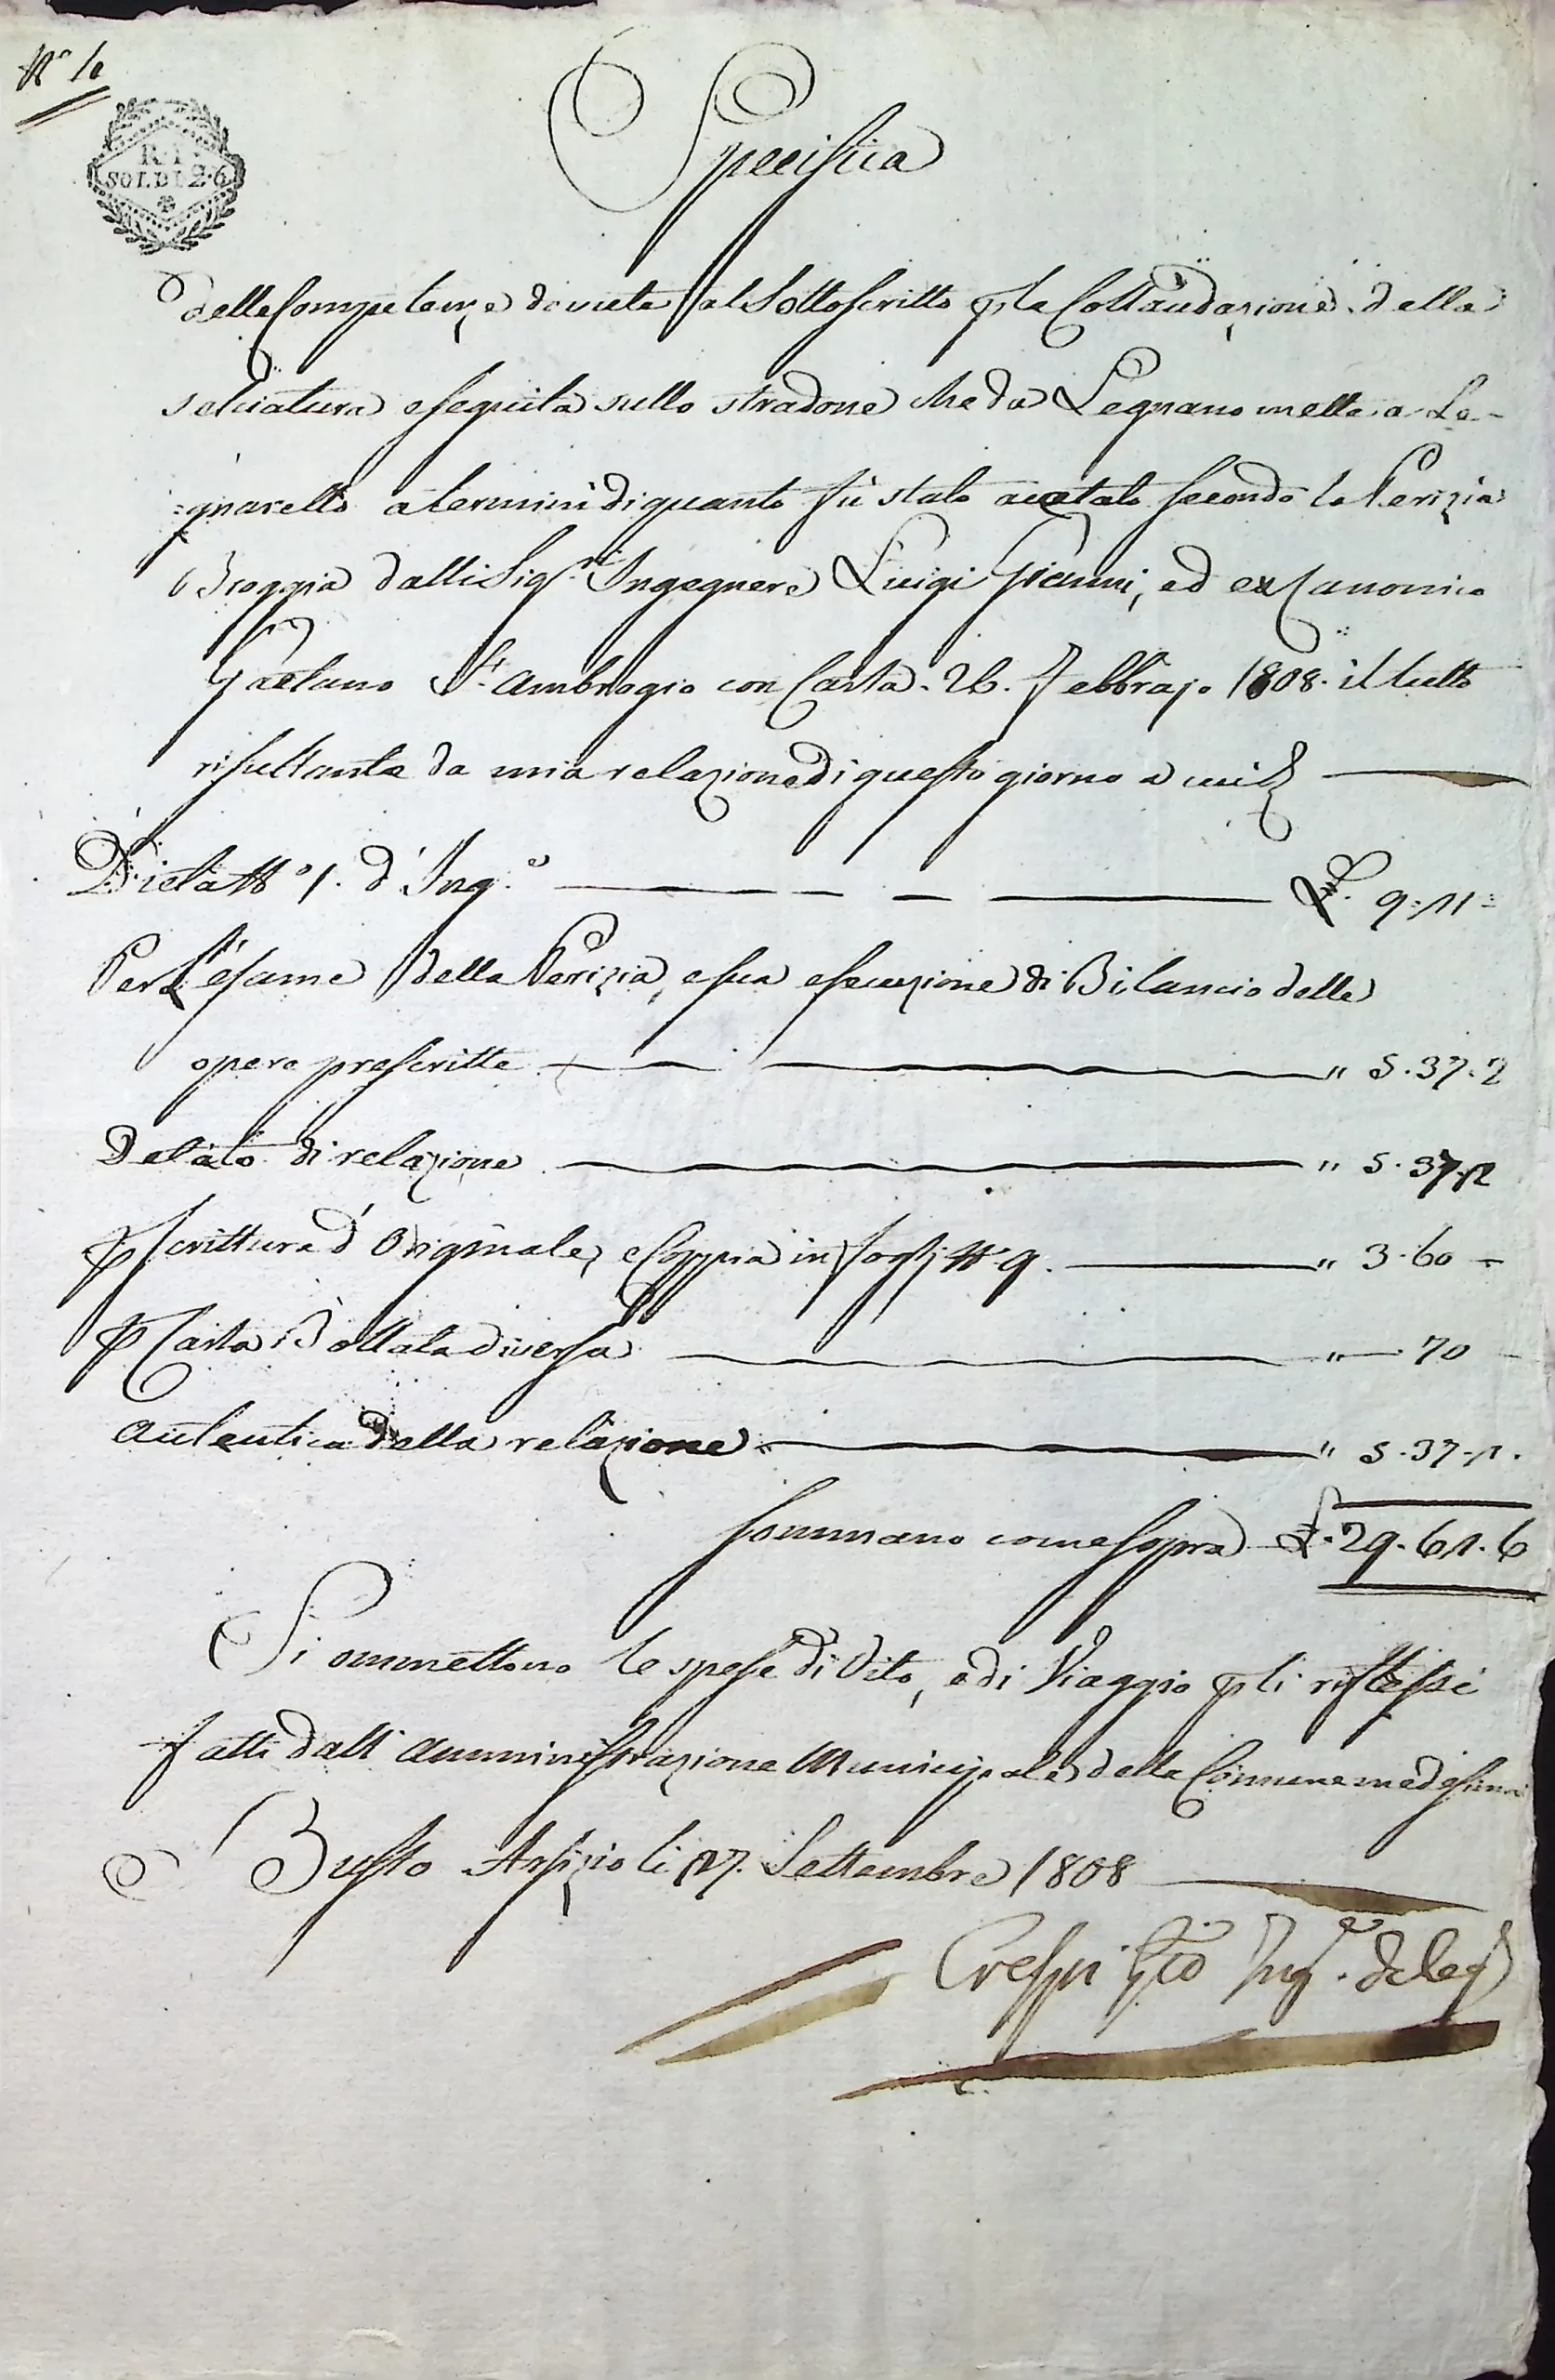 N° 10
R. I.
SOLDI 2·6
Specifica
delle Competenze dovute al Sottoscritto p la Collaudazione della
selciatura eseguita sullo stradone che da Legnano mette a Le-
=gnarello a termini di quanto fù stato accetato secondo la Perizia
Broggia dalli Sig.ri Ingegnere Luigi Gianni, ed ex Canonico
Gaetano St. Ambrogio con Carta 26. Febbrajo 1808. il tutto
risultante da mia relazione di questo giorno a cui
Dieta N° 1. d' Ing.e £. 9:11=
Per L'esame della Perizia, e sua esecuzione di Bilancio delle
opere prescritte " 5.37.2
Detato di relazione " 5.37.2
p Scrittura d' Originale, e Coppia in fogli N° 9. " 3.60 -
p Carta Bollata diversa " — 70 -
Autentica della relazione " 5.37.1.
Sommano come sopra £. 29.61.6
Si ommettono le spese di Vito, e di Viaggio p li riflessi
fatti dall' Amministrazione Municipale della Comune medesima
Busto Arsizio li 17. Settembre 1808
Crespi Ing.e deleg